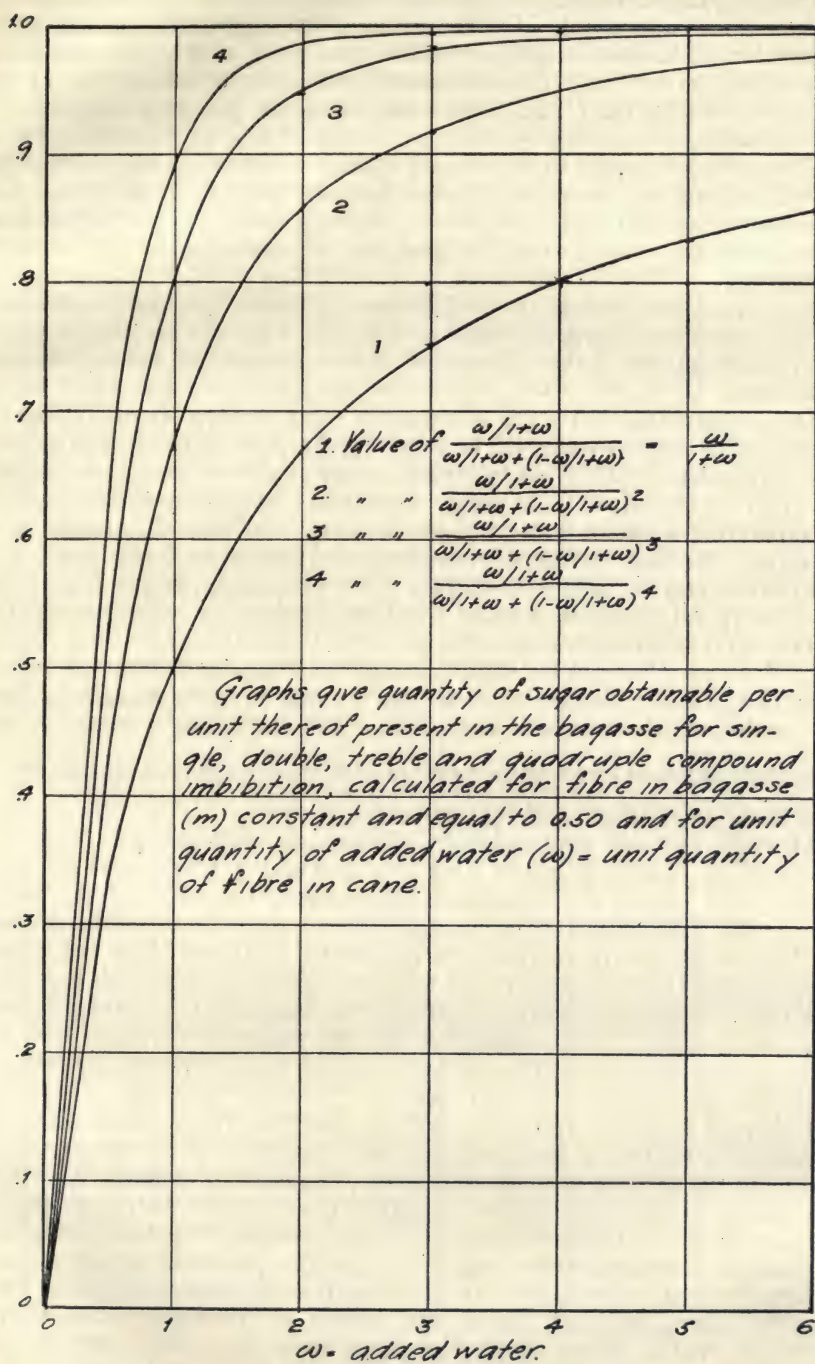 1.0
.9
.8
.7
.6
.5
.4
.3
.2
.1
0
4
3
2
1
1. Value of (ω/1+ω)/(ω/1+ω + (1-ω/1+ω)) = ω/(1+ω)
2. „ „ (ω/1+ω)/(ω/1+ω + (1-ω/1+ω)²)
3 „ „ (ω/1+ω)/(ω/1+ω + (1-ω/1+ω)³)
4 „ „ (ω/1+ω)/(ω/1+ω + (1-ω/1+ω)⁴)
Graphs give quantity of sugar obtainable per
unit thereof present in the bagasse for sin-
gle, double, treble and quadruple compound
imbibition, calculated for fibre in bagasse
(m) constant and equal to 0.50 and for unit
quantity of added water (ω) = unit quantity
of fibre in cane.
0 1 2 3 4 5 6
ω = added water.